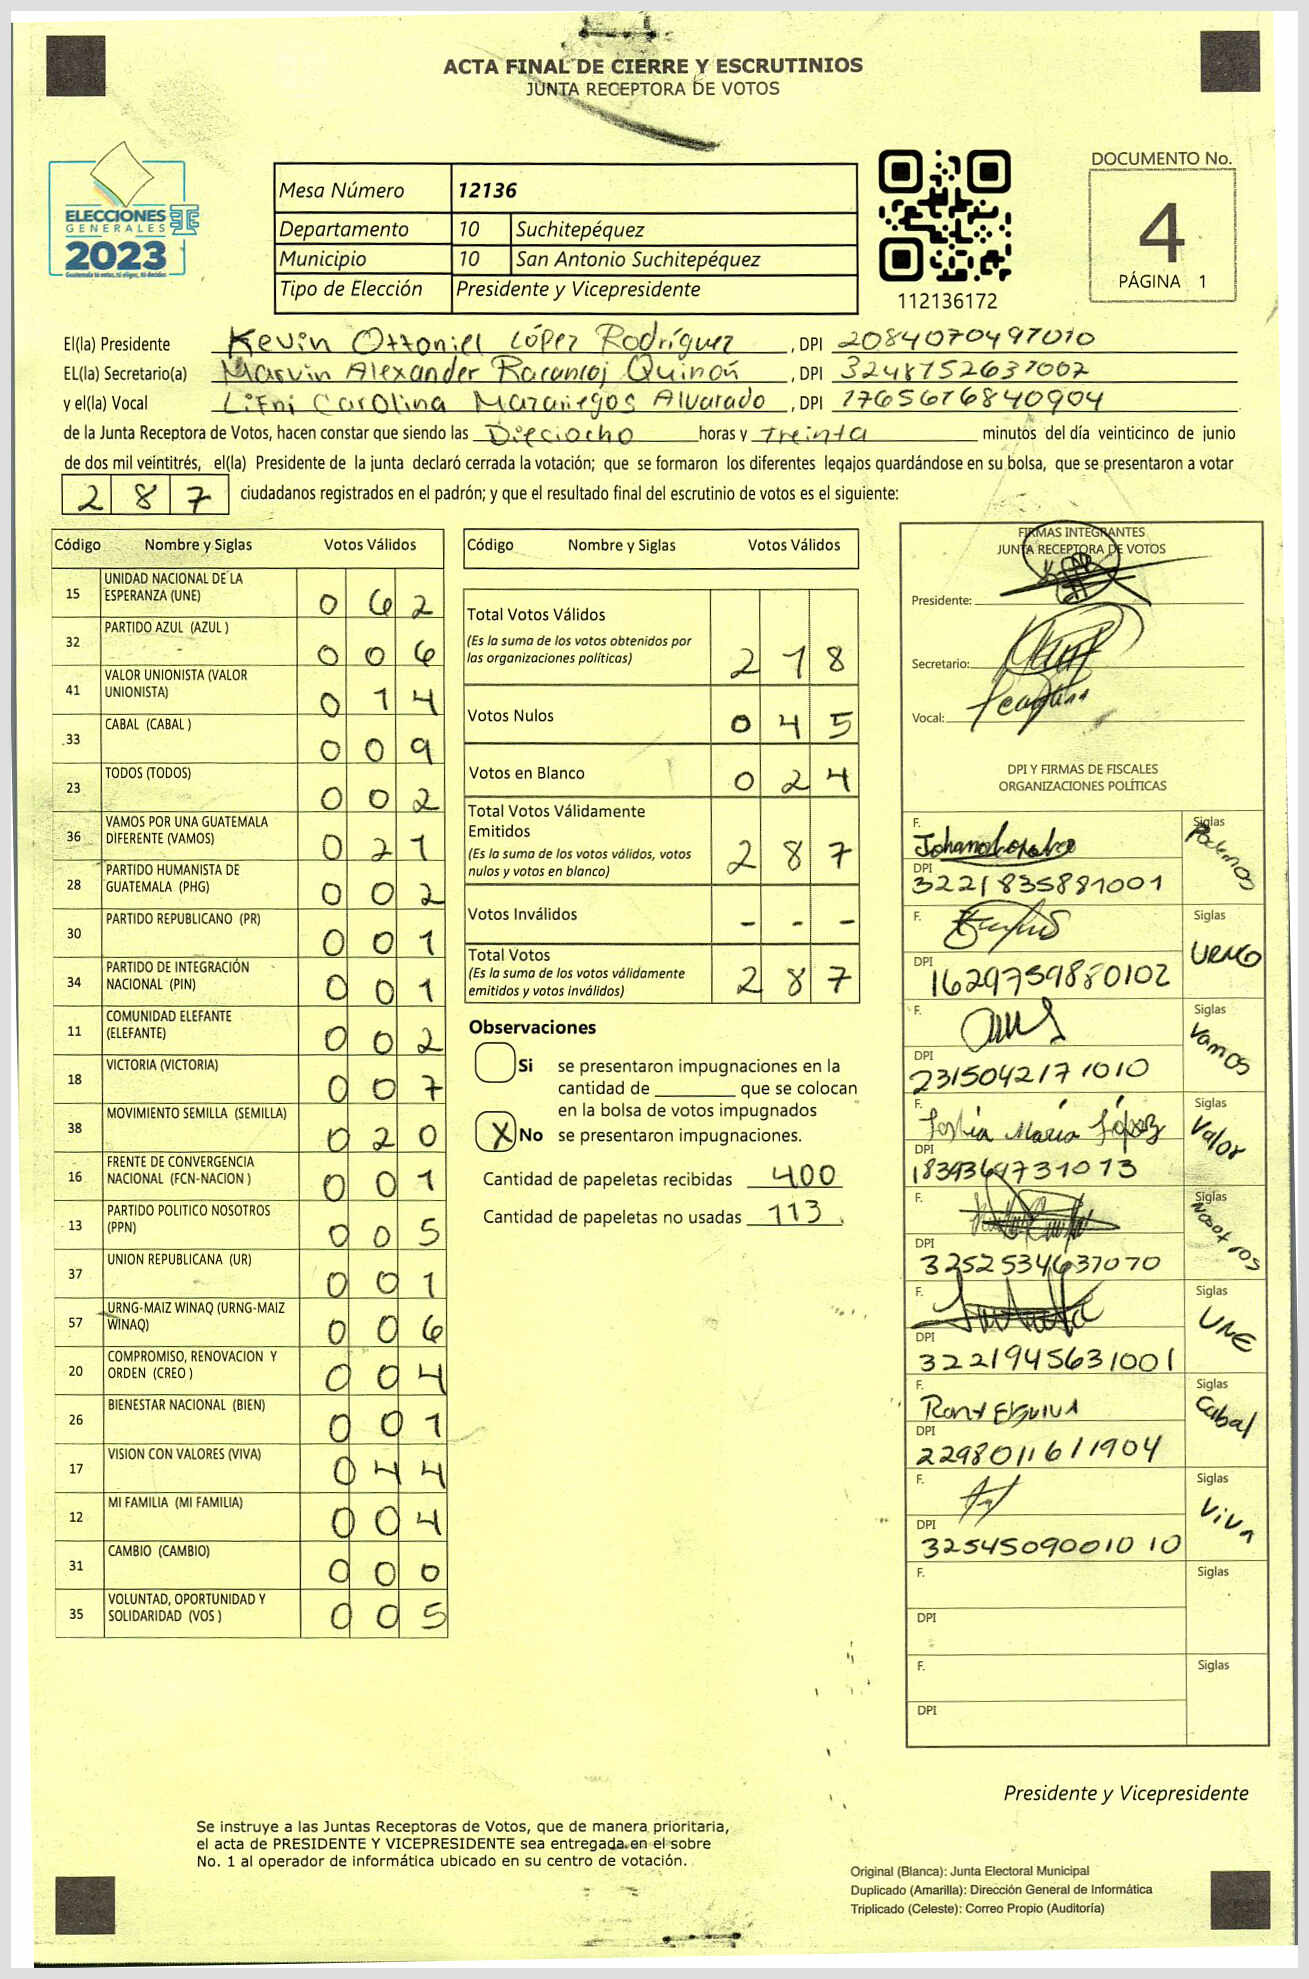 ACTA FINAL DE CIERRE Y ESCRUTINIOS
JUNTA RECEPTORA DE VOTOS
ELECCIONES
GENERALES
2023
Mesa Número 12136
Departamento 10 Suchitepéquez
Municipio 10 San Antonio Suchitepéquez
Tipo de Elección Presidente y Vicepresidente
112136172
DOCUMENTO No.
4
PÁGINA 1
El(la) Presidente Kevin Ottoniel López Rodríguez, DPI 2084070497010
EL(la) Secretario(a) Marvin Alexander Racancoj Quinoñ, DPI 3248752637007
y el(la) Vocal Lifni Carolina Mazariegos Alvarado, DPI 1765616840904
de la Junta Receptora de Votos, hacen constar que siendo las Dieciocho horas y treinta minutos del día veinticinco de junio
de dos mil veintitrés, el(la) Presidente de la junta declaró cerrada la votación; que se formaron los diferentes legajos guardándose en su bolsa, que se presentaron a votar
287 ciudadanos registrados en el padrón; y que el resultado final del escrutinio de votos es el siguiente:
Código Nombre y Siglas Votos Válidos
15 UNIDAD NACIONAL DE LA ESPERANZA (UNE) 062
32 PARTIDO AZUL (AZUL ) 006
41 VALOR UNIONISTA (VALOR UNIONISTA) 014
33 CABAL (CABAL ) 009
23 TODOS (TODOS) 002
36 VAMOS POR UNA GUATEMALA DIFERENTE (VAMOS) 021
28 PARTIDO HUMANISTA DE GUATEMALA (PHG) 002
30 PARTIDO REPUBLICANO (PR) 001
34 PARTIDO DE INTEGRACIÓN NACIONAL (PIN) 001
11 COMUNIDAD ELEFANTE (ELEFANTE) 002
18 VICTORIA (VICTORIA) 007
38 MOVIMIENTO SEMILLA (SEMILLA) 020
16 FRENTE DE CONVERGENCIA NACIONAL (FCN-NACION ) 001
13 PARTIDO POLITICO NOSOTROS (PPN) 005
37 UNION REPUBLICANA (UR) 001
57 URNG-MAIZ WINAQ (URNG-MAIZ WINAQ) 006
20 COMPROMISO, RENOVACION Y ORDEN (CREO ) 004
26 BIENESTAR NACIONAL (BIEN) 001
17 VISION CON VALORES (VIVA) 044
12 MI FAMILIA (MI FAMILIA) 004
31 CAMBIO (CAMBIO) 000
35 VOLUNTAD, OPORTUNIDAD Y SOLIDARIDAD (VOS ) 005
Código Nombre y Siglas Votos Válidos
Total Votos Válidos
(Es la suma de los votos obtenidos por
las organizaciones políticas) 218
Votos Nulos 045
Votos en Blanco 024
Total Votos Válidamente
Emitidos
(Es la suma de los votos válidos, votos
nulos y votos en blanco) 287
Votos Inválidos - - -
Total Votos
(Es la suma de los votos válidamente
emitidos y votos inválidos) 287
Observaciones
Si se presentaron impugnaciones en la
cantidad de ________ que se colocan
en la bolsa de votos impugnados
X No se presentaron impugnaciones.
Cantidad de papeletas recibidas 400
Cantidad de papeletas no usadas 113
FIRMAS INTEGRANTES
JUNTA RECEPTORA DE VOTOS
Presidente:
Secretario:
Vocal:
DPI Y FIRMAS DE FISCALES
ORGANIZACIONES POLÍTICAS
F. Siglas Podemos
DPI 3221835881001
F. Siglas URNG
DPI 1629759880102
F. Siglas Vamos
DPI 2315042171010
F. María López Siglas Valor
DPI 1839364731013
F. Siglas Nosotros
DPI 3252534637070
F. Siglas UNE
DPI 3221945631001
F. Siglas Cabal
DPI 2298011611904
F. Siglas Viva
DPI 3254509001010
F. Siglas
DPI
F. Siglas
DPI
Presidente y Vicepresidente
Se instruye a las Juntas Receptoras de Votos, que de manera prioritaria,
el acta de PRESIDENTE Y VICEPRESIDENTE sea entregada en el sobre
No. 1 al operador de informática ubicado en su centro de votación.
Original (Blanca): Junta Electoral Municipal
Duplicado (Amarilla): Dirección General de Informática
Triplicado (Celeste): Correo Propio (Auditoría)